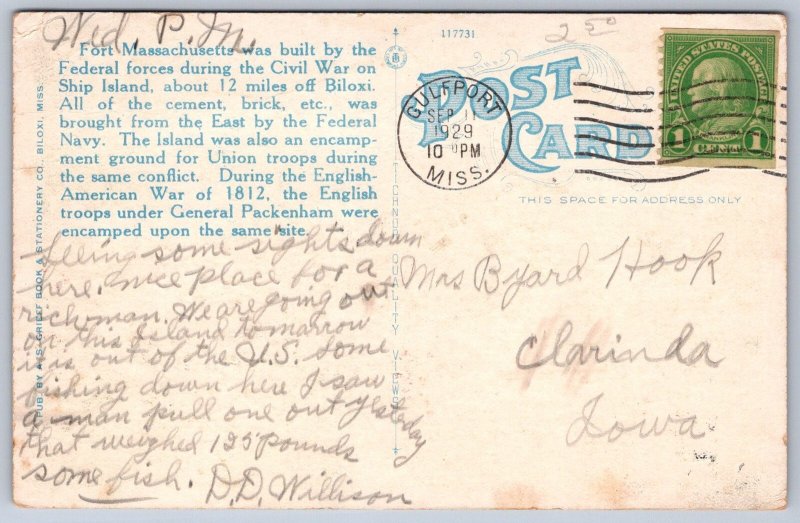 Wed. P.M.
Fort Massachusetts was built by the
Federal forces during the Civil War on
Ship Island, about 12 miles off Biloxi.
All of the cement, brick, etc., was
brought from the East by the Federal
Navy. The Island was also an encamp-
ment ground for Union troops during
the same conflict. During the English-
American War of 1812, the English
troops under General Packenham were
encamped upon the same site.
Seeing some sights down
here. nice place for a
rich man. We are going out
on this Island tomarrow
it is out of the U.S. Some
fishing down here I saw
a man pull one out yestaday
that weighed 125 pounds
some fish. D.D. Willison
PUB. BY A. S. GRIEFF BOOK & STATIONERY CO., BILOXI, MISS.
117731
TICHNOR QUALITY VIEWS
POST
CARD
THIS SPACE FOR ADDRESS ONLY
GULFPORT
SEP 11
1929
10 PM
MISS.
2 50
UNITED STATES POSTAGE
1 CENT 1
Mrs Byard Hook
Clarinda
Iowa